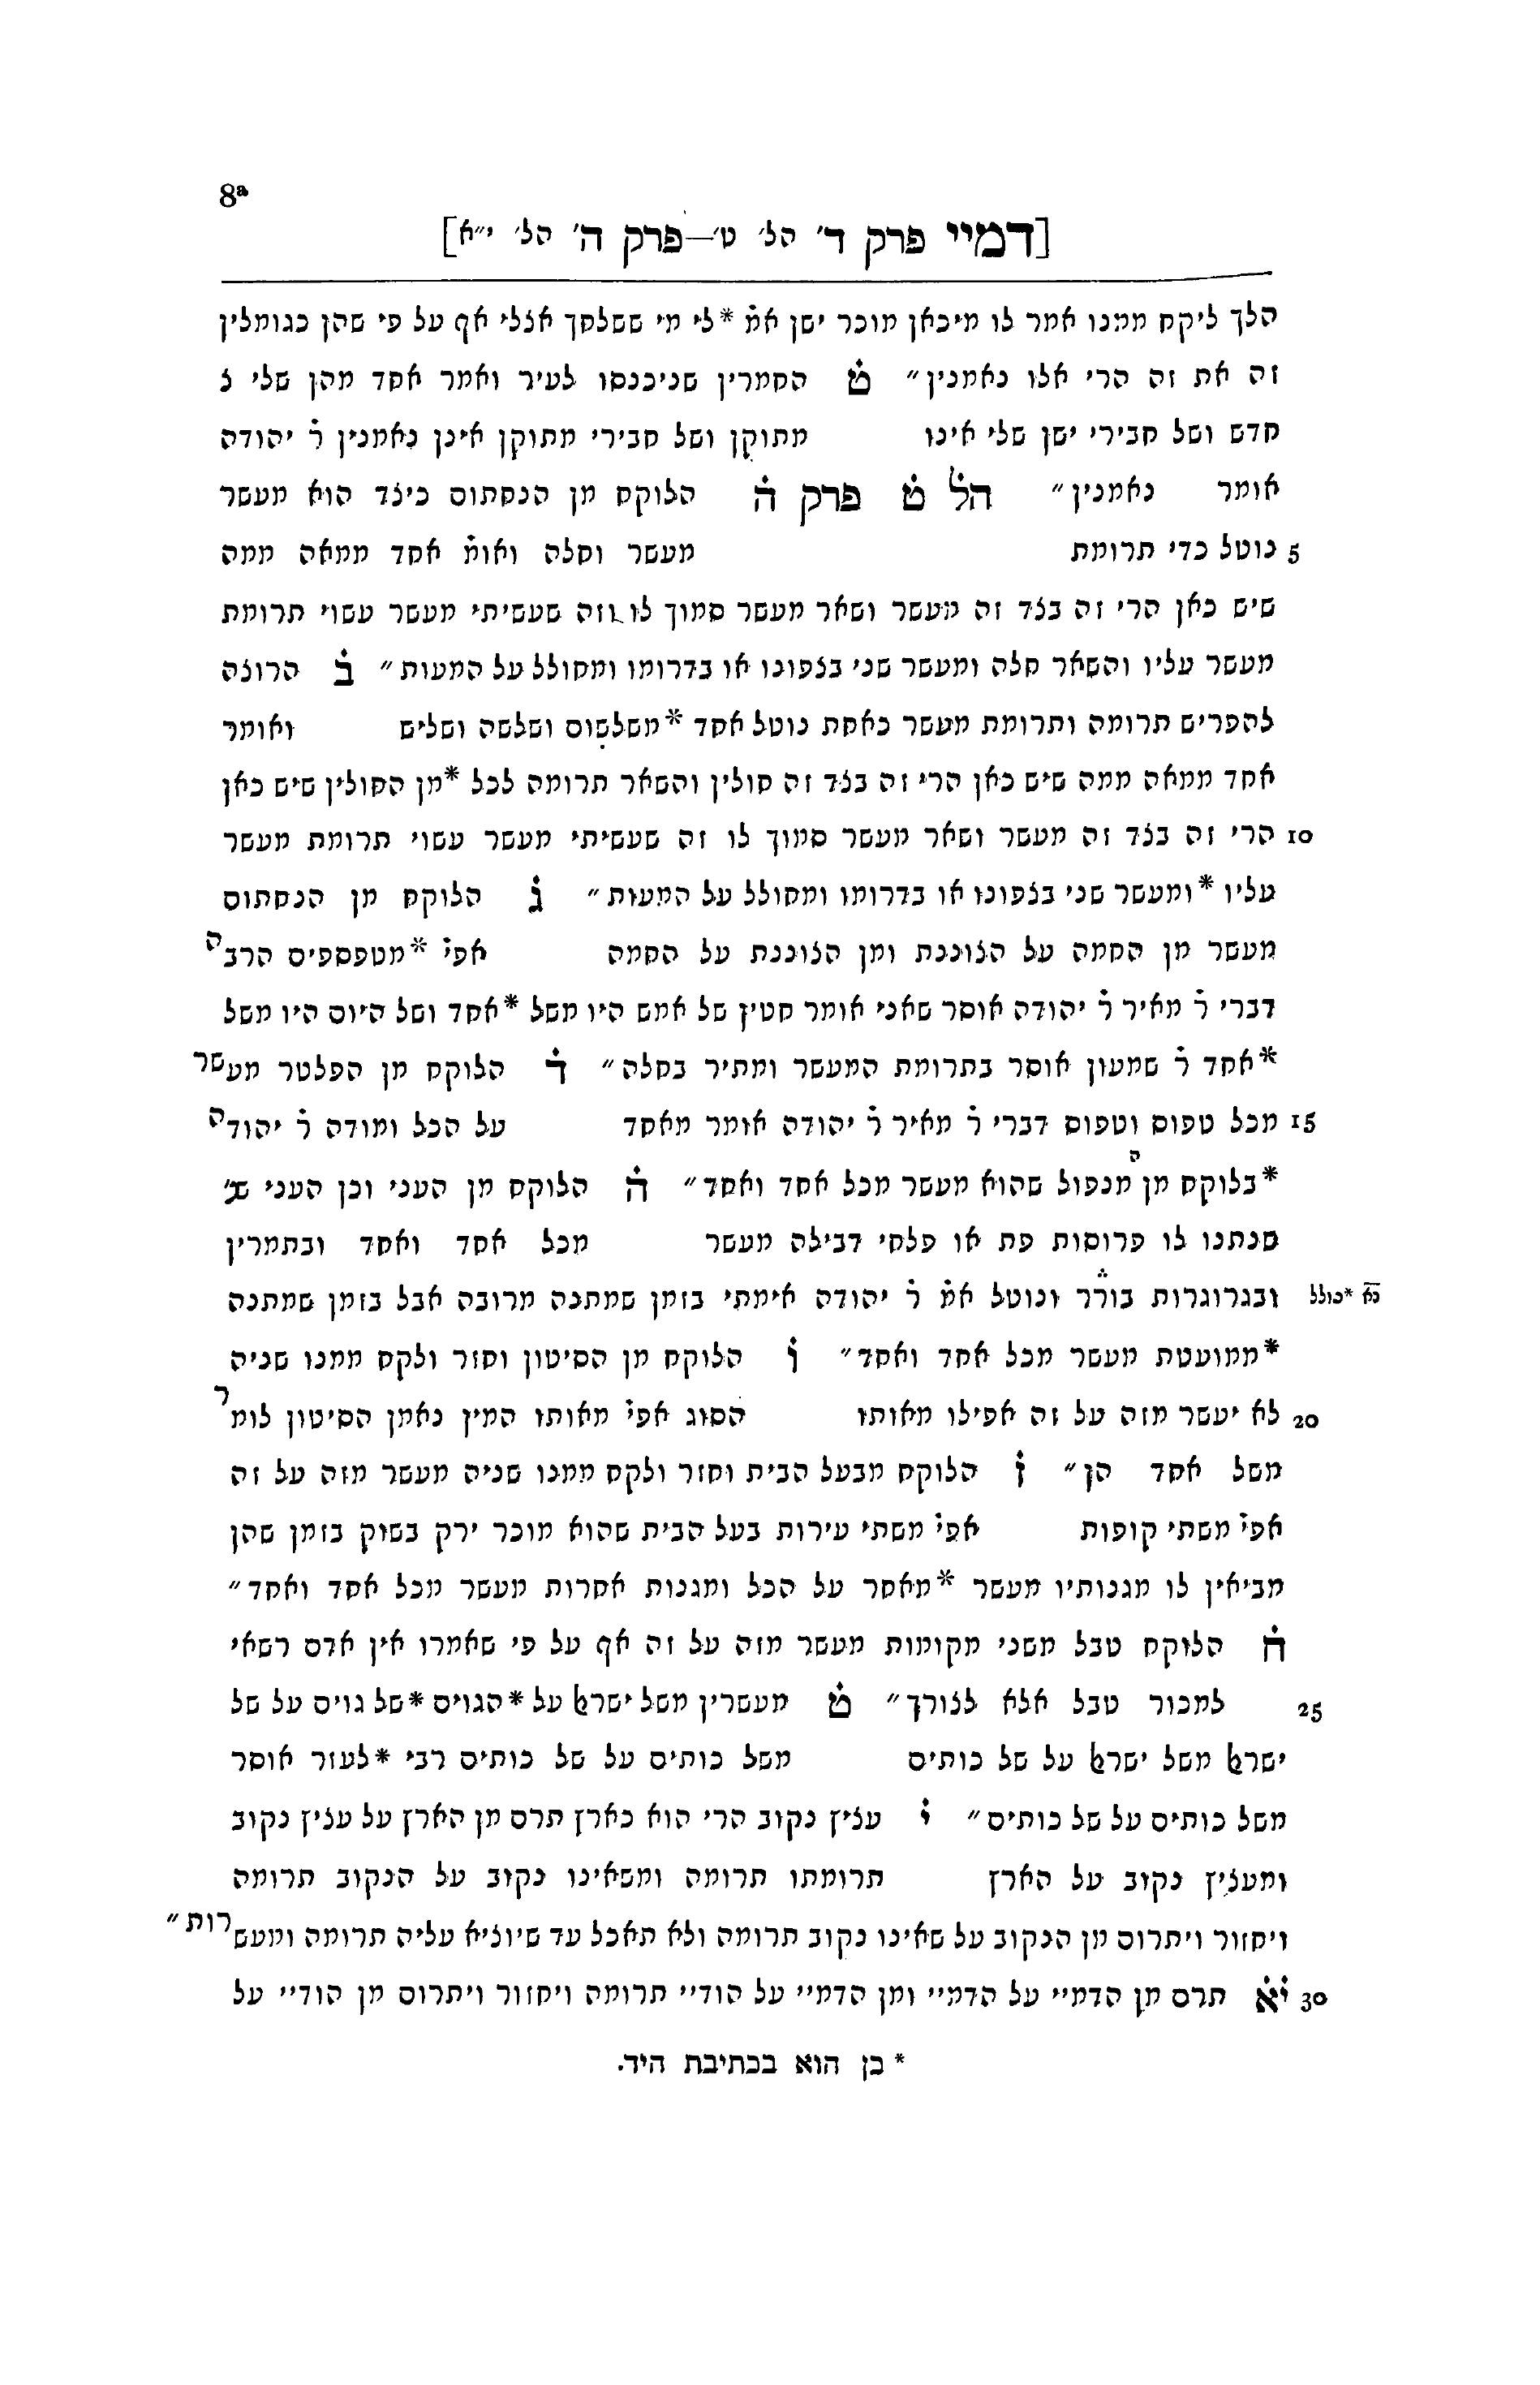 8ª
[דמיי פרק ד' הל' ט'—פרק ה' הל' י״א]
הלך ליקח ממנו אמר לו מיכאן מוכר ישן אמ̇ *לי מי ששלחך אצלי אף על פי שהן כגומלין
זה את זה הרי אלו נאמנין״ ט̇ החמרין שניכנסו לעיר ואמר אחד מהן שלי ל
חדש ושל חבירי ישן שלי אינו מתוקן ושל חבירי מתוקן אינן נאמנין ר̇ יהודה
אומר נאמנין״ הל̇ ט̇ פרק ה̇ הלוקח מן הנחתום כיצד הוא מעשר
5 נוטל כדי תרומת מעשר וחלה ואומ̇ אחד ממאה ממה
שיש כאן הרי זה בצד זה מעשר ושאר מעשר סמוך לו זה שעשיתי מעשר עשוי תרומת
מעשר עליו והשאר חלה ומעשר שני בצפונו או בדרומו ומחולל על המעות״ ב̇ הרוצה
להפריש תרומה ותרומת מעשר כאחת נוטל אחד *משלשום ושלשה ושליש ואומר
אחד ממאה ממה שיש כאן הרי זה בצד זה חולין והשאר תרומה לכל *מן החולין שיש כאן
10 הרי זה בצד זה מעשר ושאר מעשר סמוך לו זה שעשיתי מעשר עשוי תרומת מעשר
עליו *ומעשר שני בצפונו או בדרומו ומחולל על המעות״ ג̇ הלוקח מן הנחתום
מעשר מן החמה על הצוננת ומן הצוננת על החמה אפי̇ *מטפספים הרבה
דברי ר̇ מאיר ר̇ יהודה אוסר שאני אומר חטין של אמש היו משל *אחד ושל היום היו משל
*אחד ר̇ שמעון אוסר בתרומת המעשר ומתיר בחלה״ ד̇ הלוקח מן הפלטר מעשר
15 מכל טפוס וטפוס דברי ר̇ מאיר ר̇ יהודה אומר מאחד על הכל ומודה ר̇ יהודה
*בלוקח מן המנפול שהוא מעשר מכל אחד ואחד״ ה̇ הלוקח מן העני וכן העני
שנתנו לו פרוסות פת או פלחי דבילה מעשר מכל אחד ואחד ובתמרין
ובגרוגרות בורר ונוטל אמ̇ ר̇ יהודה אימתי בזמן שמתנה מרובה אבל בזמן שמתנה נא *כולל
*ממועטת מעשר מכל אחד ואחד״ ו̇ הלוקח מן הסיטון וחזר ולקח ממנו שניה
20 לא יעשר מזה על זה אפילו מאותו הסוג אפי̇ מאותו המין נאמן הסיטון לומר
משל אחד הן״ ז̇ הלוקח מבעל הבית וחזר ולקח ממנו שניה מעשר מזה על זה
אפי̇ משתי קופות אפי̇ משתי עירות בעל הבית שהוא מוכר ירק בשוק בזמן שהן
מביאין לו מגנותיו מעשר *מאחר על הכל ומגנות אחרות מעשר מכל אחד ואחד״
ח̇ הלוקח טבל משני מקומות מעשר מזה על זה אף על פי שאמרו אין אדם רשאי
25 למכור טבל אלא לצורך״ ט̇ מעשרין משל ישרﭏ על *הגוים *של גוים על של
ישרﭏ משל ישרﭏ על של כותים משל כותים על של כותים רבי *לעזר אוסר
משל כותים על של כותים״ י̇ עציץ נקוב הרי הוא כארץ תרם מן הארץ על עציץ נקוב
ומעציץ נקוב על הארץ תרומתו תרומה ומשאינו נקוב על הנקוב תרומה
ויחזור ויתרום מן הנקוב על שאינו נקוב תרומה ולא תאכל עד שיוציא עליה תרומה ומעשרות״
30 י̇א̇ תרם מן הדמיי על הדמיי ומן הדמיי על הודיי תרומה ויחזור ויתרום מן הודיי על
* כן הוא בכתיבת היד.